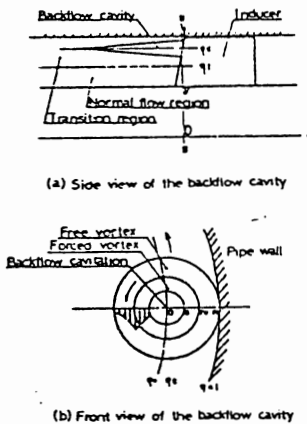 Backflow cavity
Inducer
Normal flow region
Transition region
(a) Side view of the backflow cavity
Free vortex
Forced vortex
Backflow cavitation
Pipe wall
(b) Front view of the backflow cavity